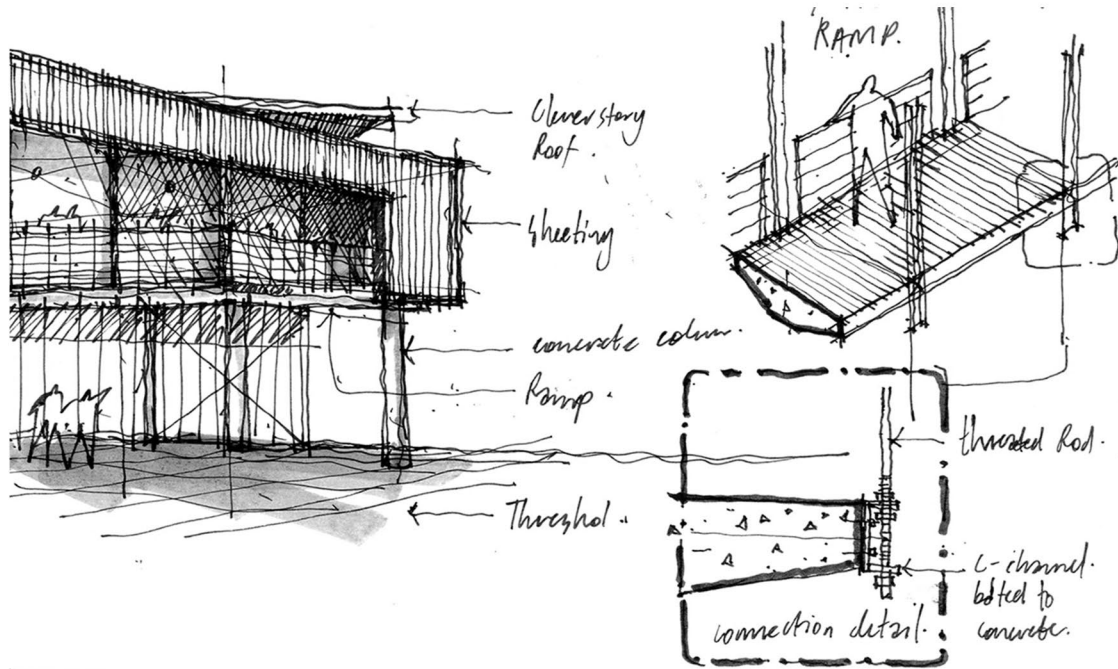 Cleverstory
Roof.
Sheeting
concrete colum.
Ramp.
Threshol.
RAMP.
threated Rod.
C-channel.
bolted to
concrete.
connection detail.